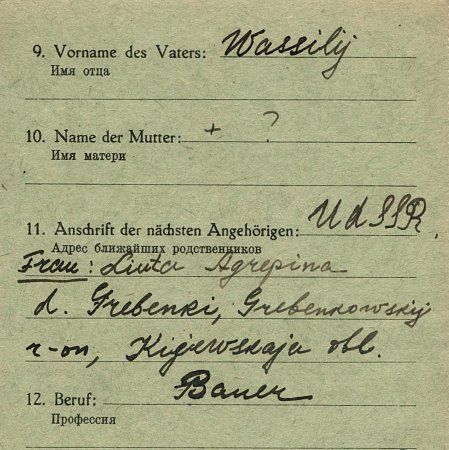 9. Vorname des Vaters: Wassilij
Имя отца
10. Name der Mutter: + ?
Имя матери
11. Anschrift der nächsten Angehörigen: UdSSR,
Адрес ближайших родственников
Frau: Liuta Agrepina
d. Grebenki, Grebenkowskij
r-on, Kijewskaja obl.
12. Beruf: Bauer
Профессия